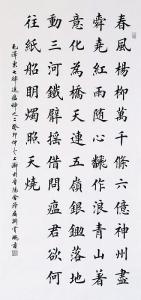 春風楊柳萬千條六億神州盡
舜堯紅雨隨心翻作浪青山着
意化為橋天連五嶺銀鋤落地
動三河鐵臂搖借問瘟君欲何
往紙船明燭照天燒
毛澤東七律送瘟神之二